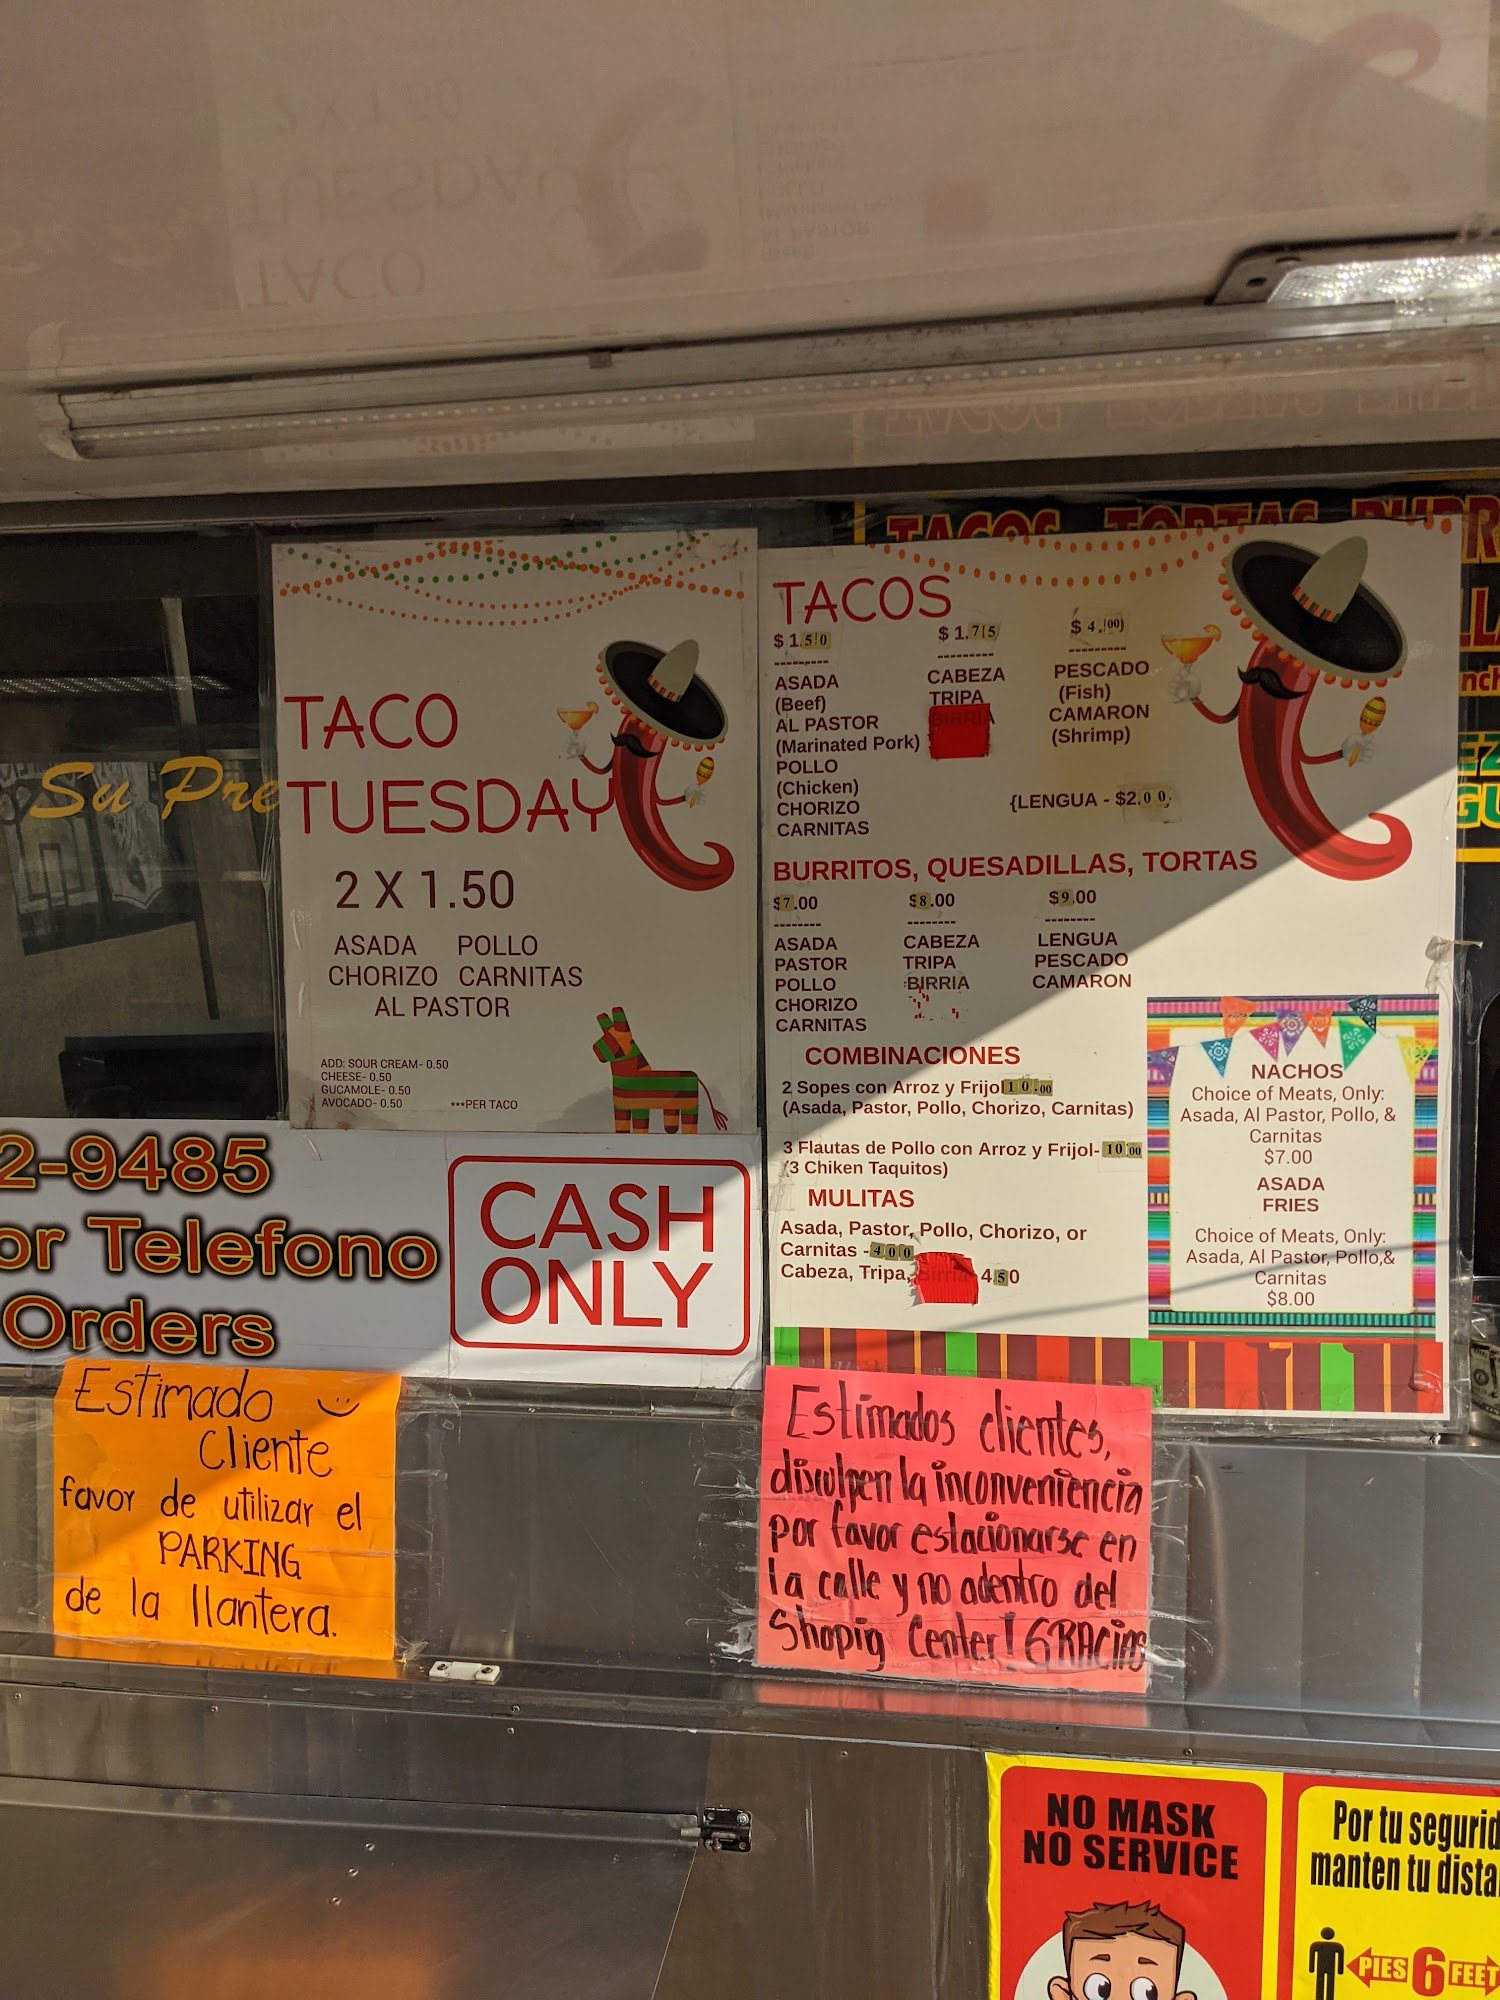 TACOS TORTAS
Su Pre
TACO
TUESDAY
2 X 1.50
ASADA POLLO
CHORIZO CARNITAS
AL PASTOR
ADD: SOUR CREAM- 0.50
CHEESE- 0.50
GUCAMOLE- 0.50
AVOCADO- 0.50 ***PER TACO
2-9485
or Telefono
Orders
CASH
ONLY
TACOS
$ 1.50
---------
ASADA
(Beef)
AL PASTOR
(Marinated Pork)
POLLO
(Chicken)
CHORIZO
CARNITAS
$ 1.75
---------
CABEZA
TRIPA
BIRRIA
$ 4.00
---------
PESCADO
(Fish)
CAMARON
(Shrimp)
{LENGUA - $2.00
BURRITOS, QUESADILLAS, TORTAS
$7.00
--------
ASADA
PASTOR
POLLO
CHORIZO
CARNITAS
$8.00
--------
CABEZA
TRIPA
BIRRIA
$9.00
--------
LENGUA
PESCADO
CAMARON
COMBINACIONES
2 Sopes con Arroz y Frijol 10.00
(Asada, Pastor, Pollo, Chorizo, Carnitas)
3 Flautas de Pollo con Arroz y Frijol- 10.00
(3 Chiken Taquitos)
MULITAS
Asada, Pastor, Pollo, Chorizo, or
Carnitas - 400
Cabeza, Tripa, Birria 4.50
NACHOS
Choice of Meats, Only:
Asada, Al Pastor, Pollo, &
Carnitas
$7.00
ASADA
FRIES
Choice of Meats, Only:
Asada, Al Pastor, Pollo,&
Carnitas
$8.00
Estimado
Cliente
favor de utilizar el
PARKING
de la llantera.
Estimados clientes,
disculpen la inconveniencia
por favor estacionarse en
la calle y no adentro del
Shopig Center! GRACias
NO MASK
NO SERVICE
Por tu segurid
manten tu dista
PIES 6 FEET